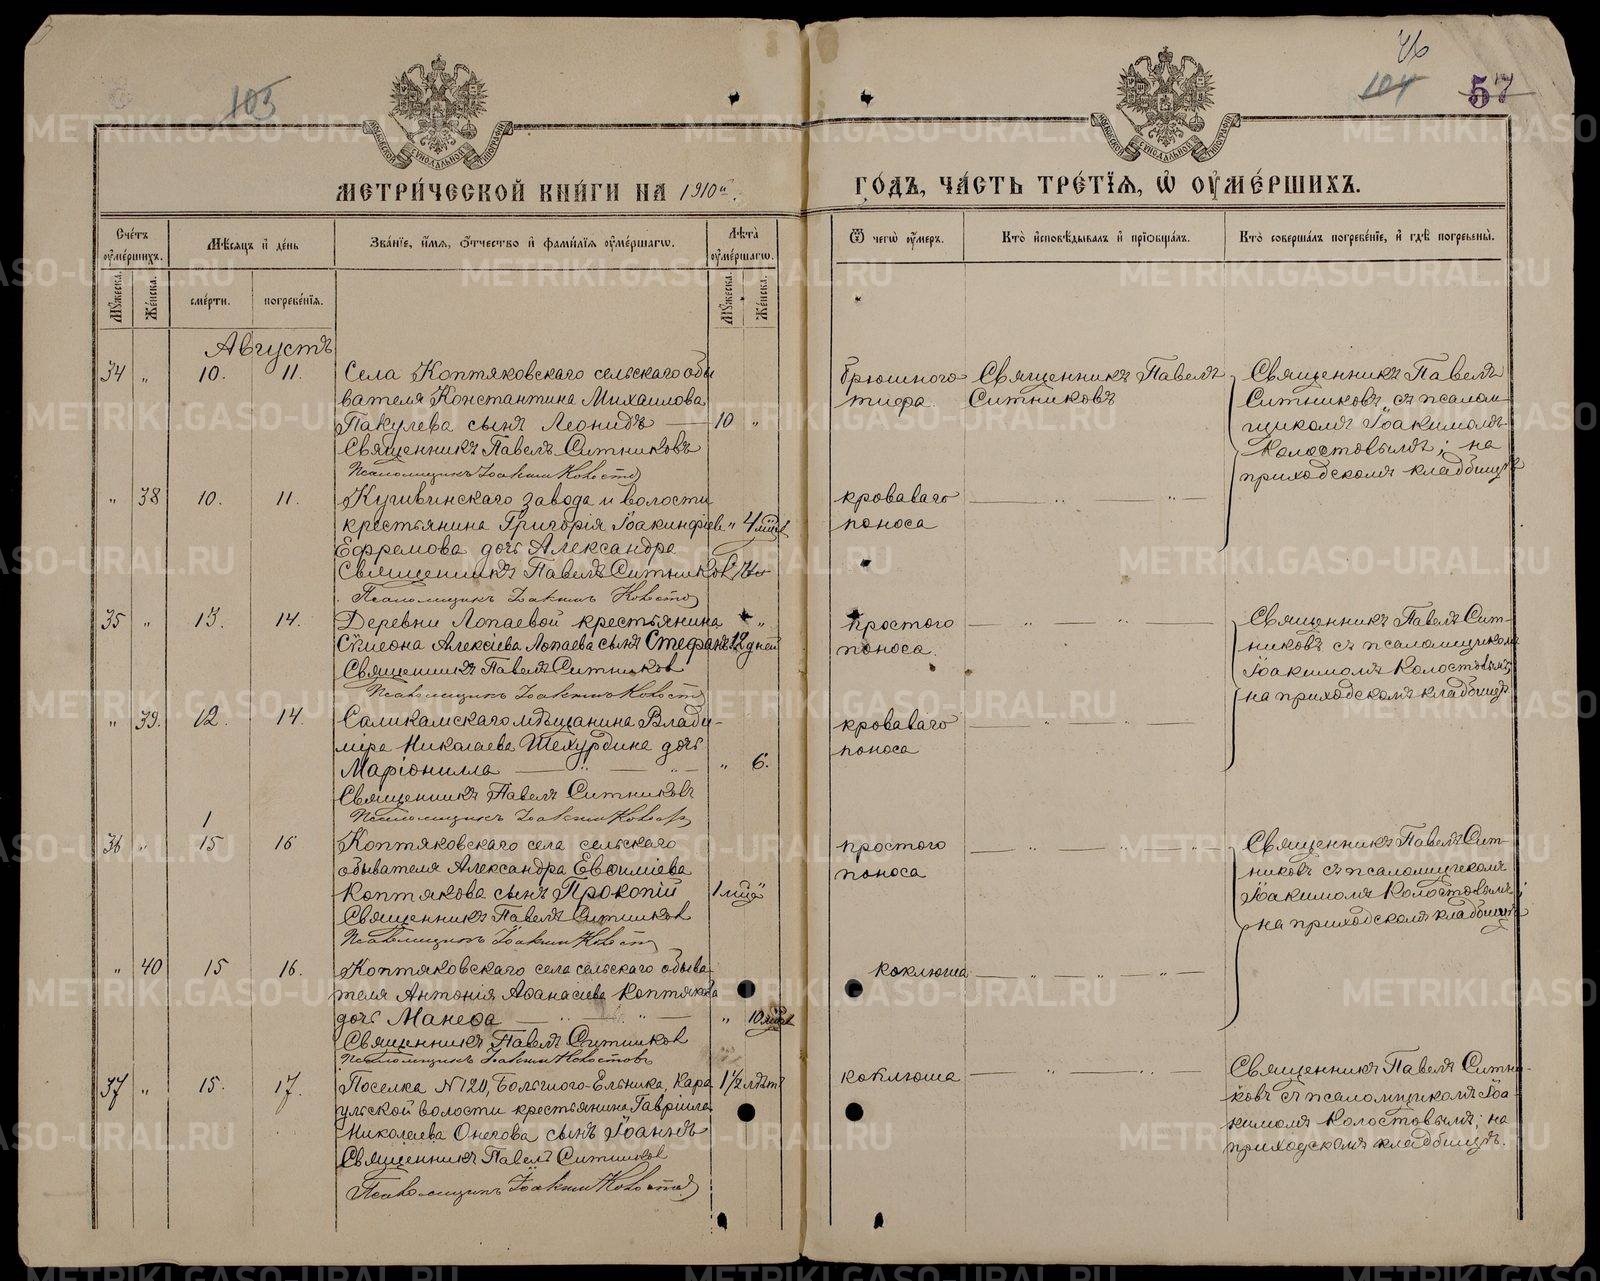 103
76
104
57
МЕТРИ́ЧЕСКОЙ КНИ́ГИ НА 1910й
ГО́ДЪ, ЧА́СТЬ ТРЕ́ТЇЯ, Ѿ ОУМЕ́РШИХЪ.
Сче́тъ оумершихъ.
Мѣсяцъ и день
Зва́нїе, и́мя, о́тчество и фами́лїя оуме́ршагѡ.
Лѣта̀ оуме́ршагѡ.
Ѿ чегѡ̀ оу́меръ.
Кто̀ исповѣ́дывалъ и прїѡбща́лъ.
Кто̀ соверша́лъ погребе́нїе, и гдѣ̀ погребены̀.
Мꙋ́жеска.
Же́нска.
сме́рти.
погребе́нїя.
Мꙋ́жеска.
Же́нска.
Августъ
34 " 10. 11. Села Коптяковскаго сельскаго обы
вателя Константина Михаилова
Пакулева сынъ Леонидъ — 10 "
Священникъ Павелъ Ситниковъ
Псаломщикъ Іоаким
брюшного
тифа.
Священникъ Павелъ
Ситниковъ
Священникъ Павелъ
Ситниковъ съ псалом
щикомъ Іоакимомъ
Колостовымъ; на
приходскомъ кладбищѣ
" 38 10. 11. Кушвинскаго завода и волости
крестьянина Григорія Іоакинфіев " 4 мѣсяц
Ефремова дочь Александра
Священникъ Павелъ Ситников
Псаломщикъ Іоаким
кроваваго
поноса
— " — " —
35 " 13. 14. Деревни Лопаевой крестьянина
Сѵмеона Алексіева Лопаева сынъ Стефанъ 12 дней "
Священникъ Павелъ Ситников
Псаломщикъ Іоакимъ
простого
поноса.
— " — " —
Священникъ Павелъ Сит-
никовъ съ псаломщикомъ
Іоакимомъ Колостовымъ;
на приходскомъ кладбищѣ
" 39. 12. 14. Саликамскаго мѣщанина Влади-
міра Николаева Шехурдина дочь
Маріонилла — " — " — " 6.
Священникъ Павелъ Ситниковъ
Псаломщикъ Іоаким
кроваваго
поноса
— " — " —
36 " 15 16 Коптяковскаго села сельскаго
обывателя Александра Евѳиміева
Коптякова сынъ Прокопій 1 мѣсяц
Священникъ Павелъ Ситников
Псаломщикъ Іоаким
простого
поноса
— " — " —
Священникъ Павелъ Сит-
никовъ съ псаломщикомъ
Іоакимомъ Колостовымъ;
на приходскомъ кладбищѣ
" 40 15 16. Коптяковскаго села сельскаго обыва
теля Антонія Аѳанасіева Коптякова
дочь Манефа — " — " — " 10 мѣсяц
Священникъ Павелъ Ситников
Псаломщикъ Іоаким
коклюша
— " — " —
37 " 15. 17. Поселка №120, Большого-Ельника, Кара 1½ лѣтъ
ульской волости крестьянина Гавріила
Николаева Онегова сынъ Іоаннъ
Священникъ Павелъ Ситников
Псаломщикъ Іоаким
коклюша
— " — " —
Священникъ Павелъ Ситни-
ковъ съ псаломщикомъ Іоа-
кимомъ Колостовымъ; на
приходскомъ кладбищѣ.
METRIKI.GASO-URAL.RU